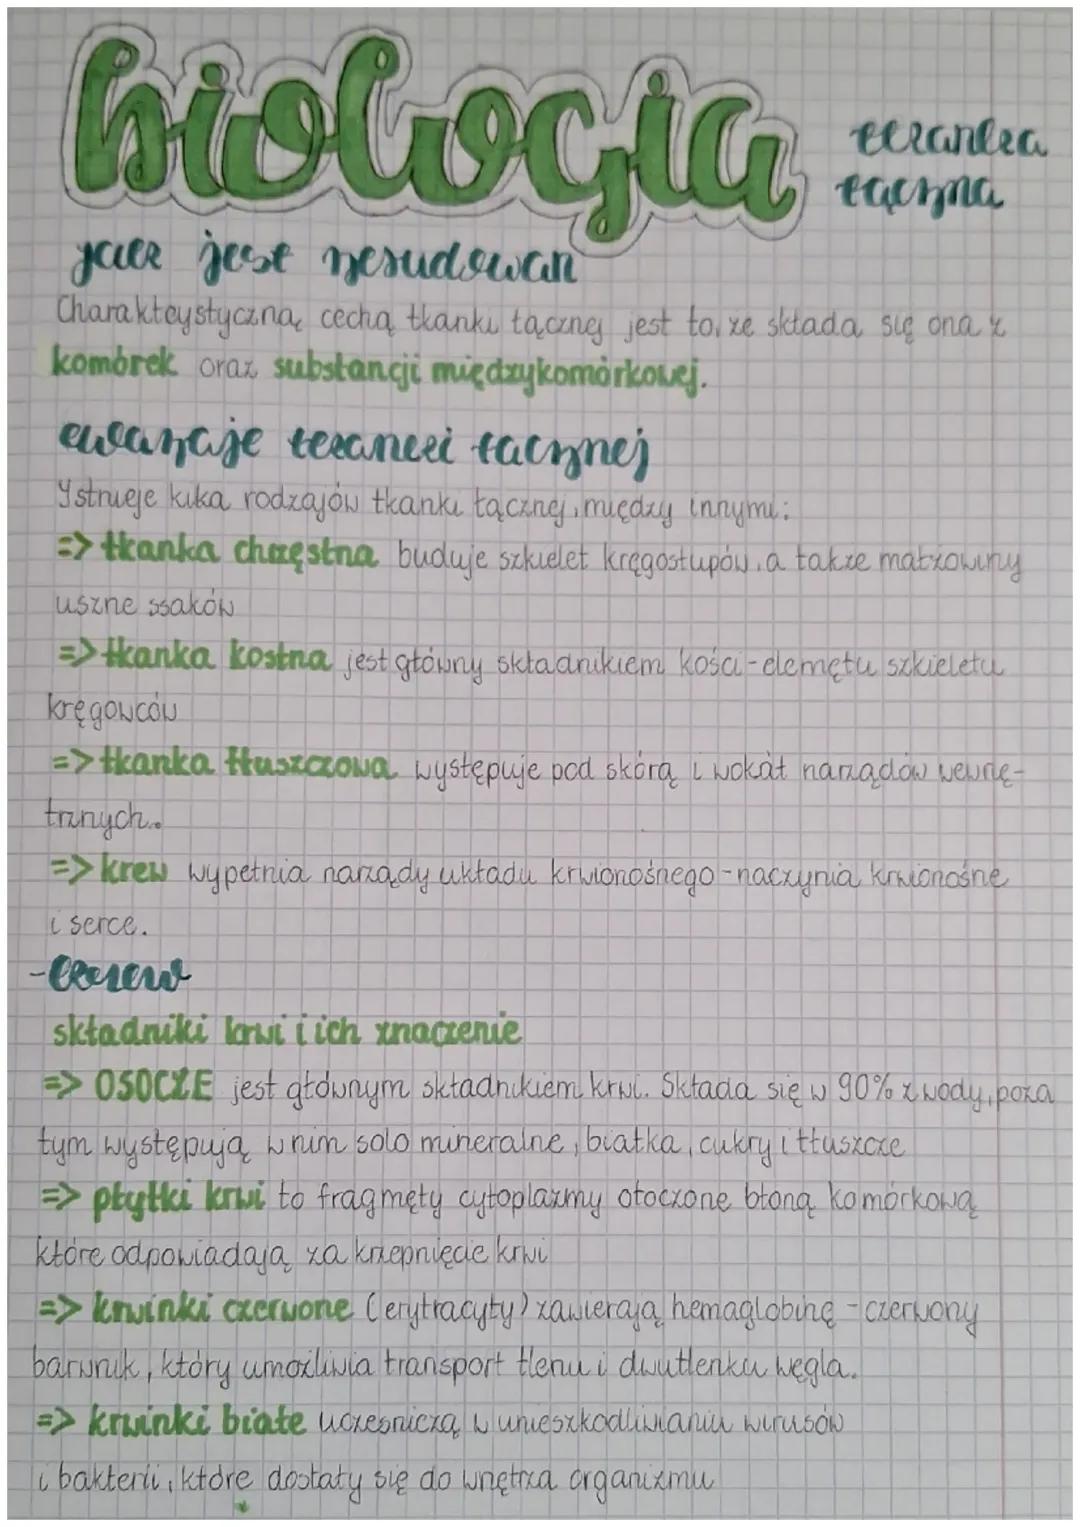 biologia
tkanka
łączna
jak jest zbudowan
Charakteystyczną cechą tkanki łącznej jest to, że składa się ona z
komórek oraz substancji międzykomórkowej.
rodzaje tkanki łącznej
Istnieje kika rodzajów tkanki łącznej, między innymi:
=> tkanka chrzęstna buduje szkielet kręgosłupów, a także małżowiny
uszne ssaków
=> tkanka kostna jest główny składnikiem kości - elemętu szkieletu
kręgowców
=> tkanka tłuszczowa występuje pod skórą i wokół narządów wewnę-
trznych.
=> krew wypełnia narządy układu krwionośnego - naczynia krwionośne
i serce.
- krew
składniki krwi i ich znaczenie
=> OSOCZE jest głównym składnikiem krwi. Składa się w 90% z wody, poza
tym występują w nim solo mineralne, białka, cukry i tłuszcze
=> płytki krwi to fragmęty cytoplazmy otoczone błoną komórkową
które odpowiadają za krzepnięcie krwi
=> krwinki czerwone (erytracyty) zawierają hemaglobinę - czerwony
barwnik, który umożliwia transport tlenu i dwutlenku węgla.
=> krwinki białe uczesniczą w unieszkodliwianiu wirusów
i bakterii, które dostały się do wnętrza organizmu